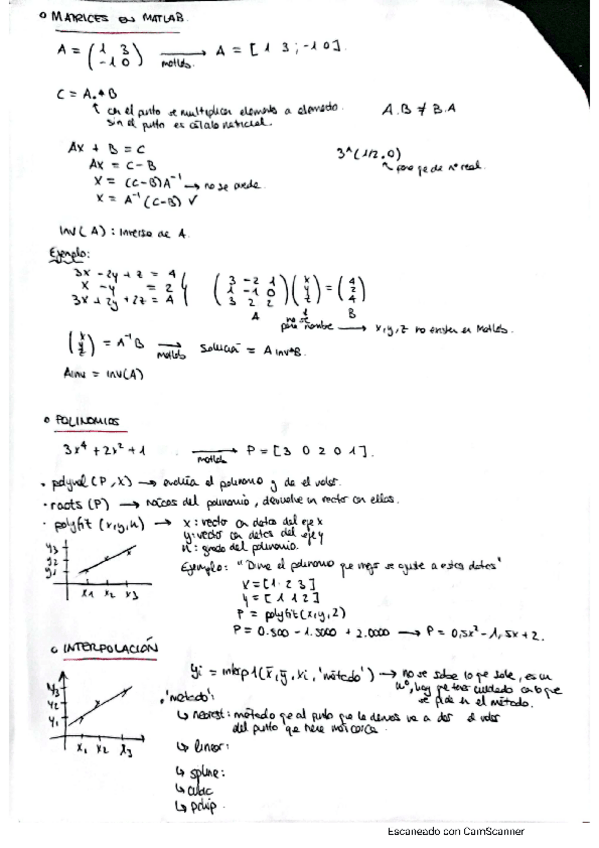 ○ MATRICES EN MATLAB.
A = ( 1 3 ; -1 0 ) → matlab A = [ 1 3 ; -1 0 ].
C = A.*B
↑ con el punto se multiplican elemento a elemento.
sin el punto es cálculo matricial.
A.B ≠ B.A
AX + B = C
AX = C - B
X = (C-B)A⁻¹ → no se puede.
X = A⁻¹(C-B) ✓
3^(1/2.0)
INV(A) : Inversa de A.
Ejemplo:
3x - 2y + z = 4
x - y = 2
3x + 2y + 2z = 4
( 3 -2 1 ; 1 -1 0 ; 3 2 2 ) ( x ; y ; z ) = ( 4 ; 2 ; 4 )
A B
→ x, y, z no existen en Matlab.
( x ; y ; z ) = A⁻¹B → matlab solución = Ainv*B.
Ainv = INV(A)
○ POLINOMIOS
3x⁴ + 2x² + 1 → matlab P = [ 3 0 2 0 1 ].
• polyval (P, x) → evalúa el polinomio y da el valor.
• roots (P) → raíces del polinomio, devuelve un vector con ellas.
• polyfit (x,y,n) → x : vector con datos del eje x
y: vector con datos del eje y
n : grado del polinomio.
y3
y2
y1
x1 x2 x3
Ejemplo: "Dime el polinomio que mejor se ajuste a estos datos"
X = [ 1 2 3 ]
Y = [ 1 1 2 ]
P = polyfit (x,y,2)
P = 0.500 - 1.5000 + 2.0000 → P = 0,5x² - 1,5x + 2.
○ INTERPOLACIÓN
y3
y2
y1
x1 x2 x3
yi = interp1(x̄, ȳ, xi, 'método') → no se sabe lo que sale, es un
nº, hay que tener cuidado con lo que
se pide en el método.
• 'método':
↳ nearest: método que al punto que le demos va a dar el valor
del punto que tiene más cerca.
↳ linear:
↳ spline:
↳ cubic
↳ pchip.
Escaneado con CamScanner